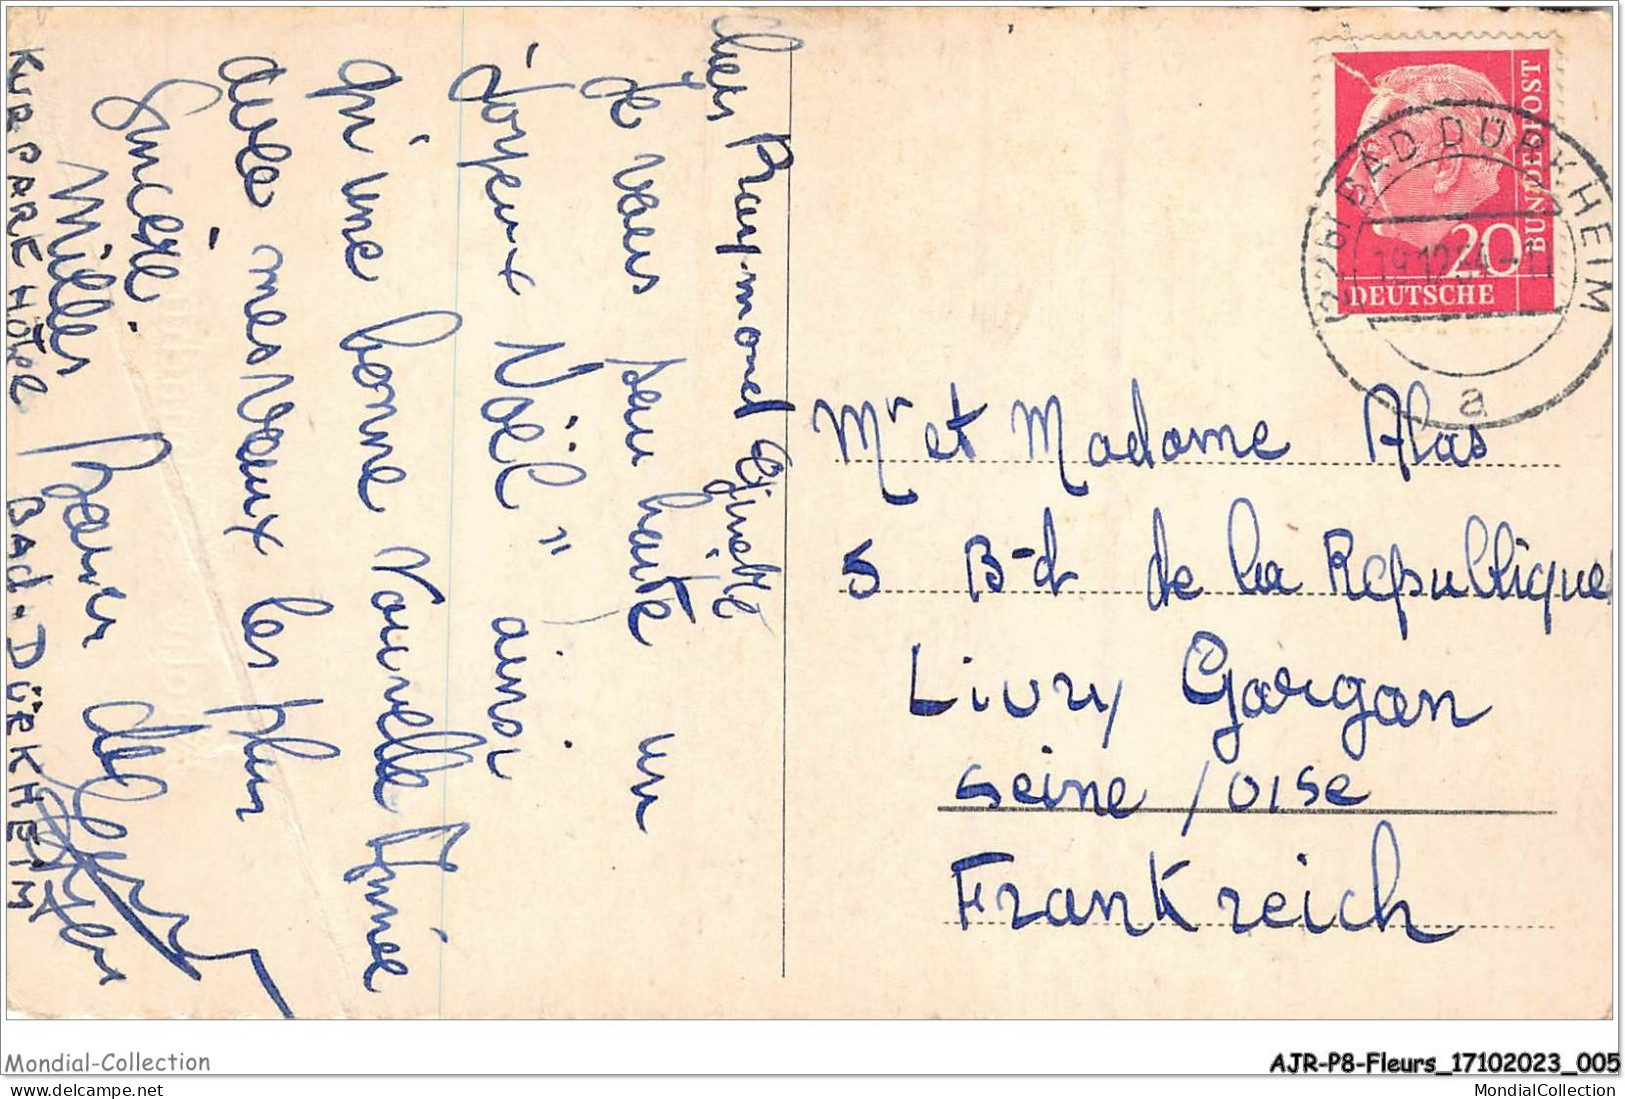 Chers Raymond Ginette
Je vous souhaite un
"Joyeux Noël" ainsi
qu'une bonne Nouvelle Année
avec mes vœux les plus
Sincère
Milles Baiser de
KURPARK HÔTEL BAD. DÜRKHEIM
BUNDESPOST
20
DEUTSCHE
BAD DÜRKHEIM
19.12.
a
Mr et Madame Alas
5 B-d de la Republique
Livry Gargan
Seine / oise
Frankreich
Mondial-Collection
AJR-P8-Fleurs_17102023_005
MondialCollection
MondialCollection